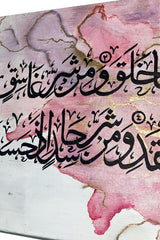 خلق ومن شر غاسق
ومن شر حاسد إذا حسد